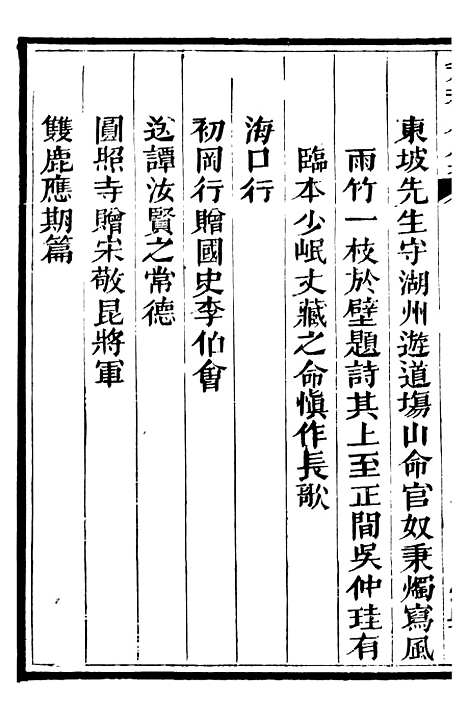 東坡先生守湖州遊道塲山命官奴秉燭寫風
雨竹一枝於壁題詩其上至正間吳仲珪有
臨本少岷丈藏之命愼作長歌
海口行
初岡行贈國史李伯會
送譚汝賢之常德
圓照寺贈宋敬昆將軍
雙鹿應期篇